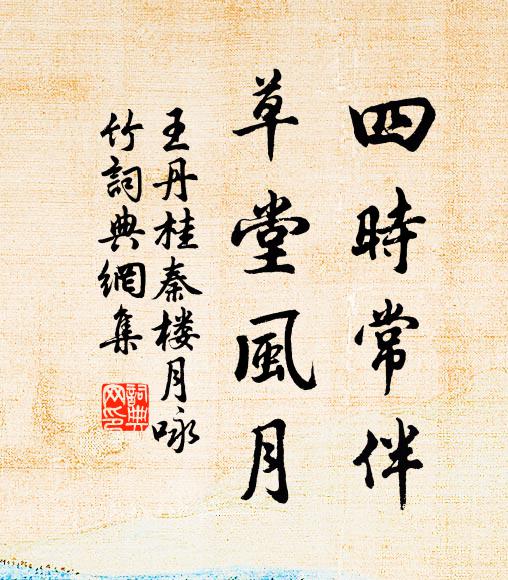 四時常伴
草堂風月
王丹桂秦楼月咏
竹詞典網集
詞典网印